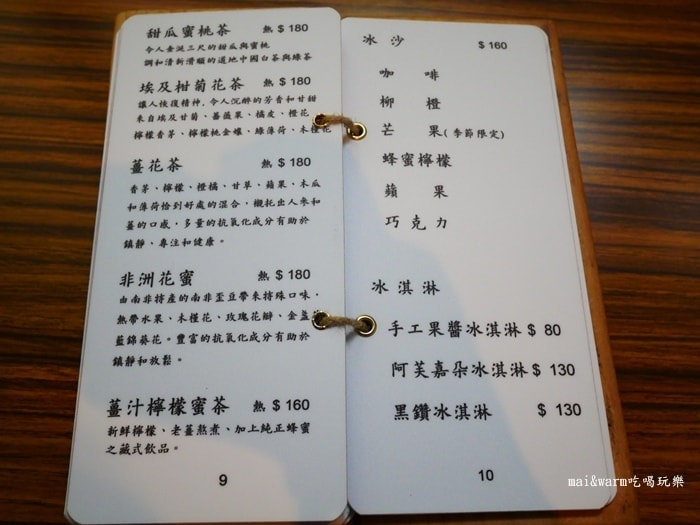 甜瓜蜜桃茶 熱 $ 180
令人垂涎三尺的甜瓜與蜜桃
調和清新滑順的道地中國白茶與綠茶
埃及柑菊花茶 熱 $ 180
讓人恢復精神,令人沉醉的芳香和甘甜
來自埃及甘菊、薔薇果、橘皮、橙花、
檸檬香茅、檸檬桃金孃、綠薄荷、木槿花
薑花茶 熱 $ 180
香茅、檸檬、橙橘、甘草、蘋果、木瓜
和薄荷恰到好處的混合,襯托出人參和
薑的口感,多量的抗氧化成分有助於
鎮靜、專注和健康。
非洲花蜜 熱 $ 180
由南非特產的南非歪豆帶來特殊口味,
熱帶水果、木槿花、玫瑰花瓣、金盞
藍錦葵花。豐富的抗氧化成分有助於
鎮靜和放鬆。
薑汁檸檬蜜茶 熱 $ 160
新鮮檸檬、老薑熬煮、加上純正蜂蜜
之藏式飲品。
9
冰 沙 $ 160
咖 啡
柳 橙
芒 果(季節限定)
蜂蜜檸檬
蘋 果
巧克力
冰淇淋
手工果醬冰淇淋 $ 80
阿芙嘉朵冰淇淋 $ 130
黑鑽冰淇淋 $ 130
10
mai&warm吃喝玩樂